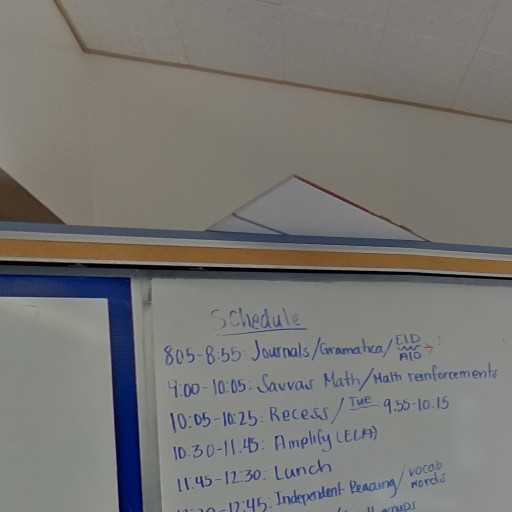 Schedule
8:05-8:55: Journals/Gramatica/ELD
AID
9:00-10:05: Savvas Math/Math reinforcements
10:05-10:25: Recess/Tue 9:55-10:15
10:30-11:45: Amplify (ELA)
11:45-12:30: Lunch
-12:45: Independent Reading/vocab
words